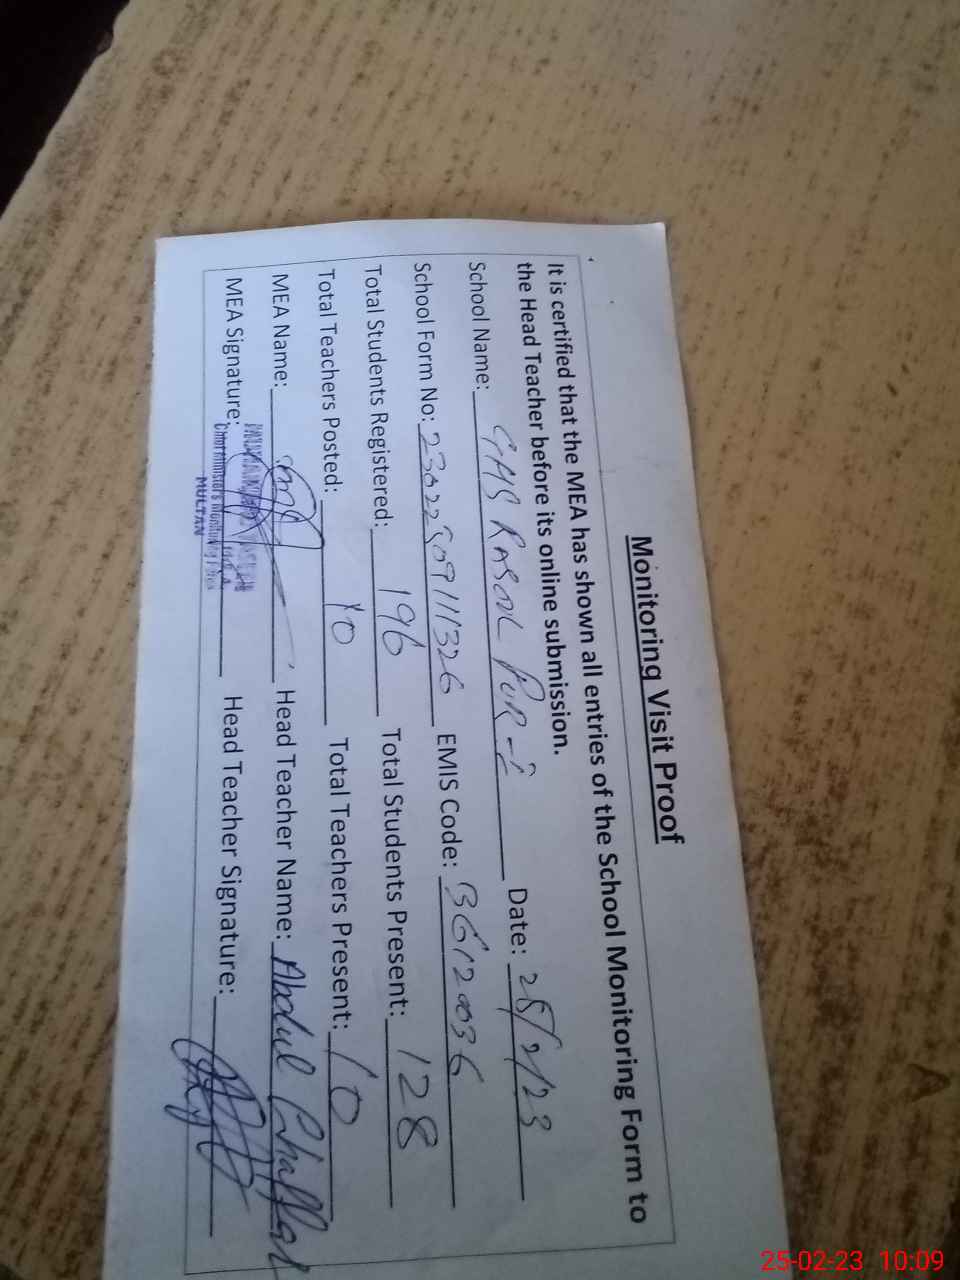 Monitoring Visit Proof
It is certified that the MEA has shown all entries of the School Monitoring Form to
the Head Teacher before its online submission.
School Name: GMS RASOOL PUR-2 Date: 25/2/23
School Form No: 2302250911326 EMIS Code: 36120036
Total Students Registered: 196 Total Students Present: 128
Total Teachers Posted: 10 Total Teachers Present: 10
MEA Name: Head Teacher Name: Abdul Ghaffar
MEA Signature: Head Teacher Signature:
MULTAN
25-02-23 10:09